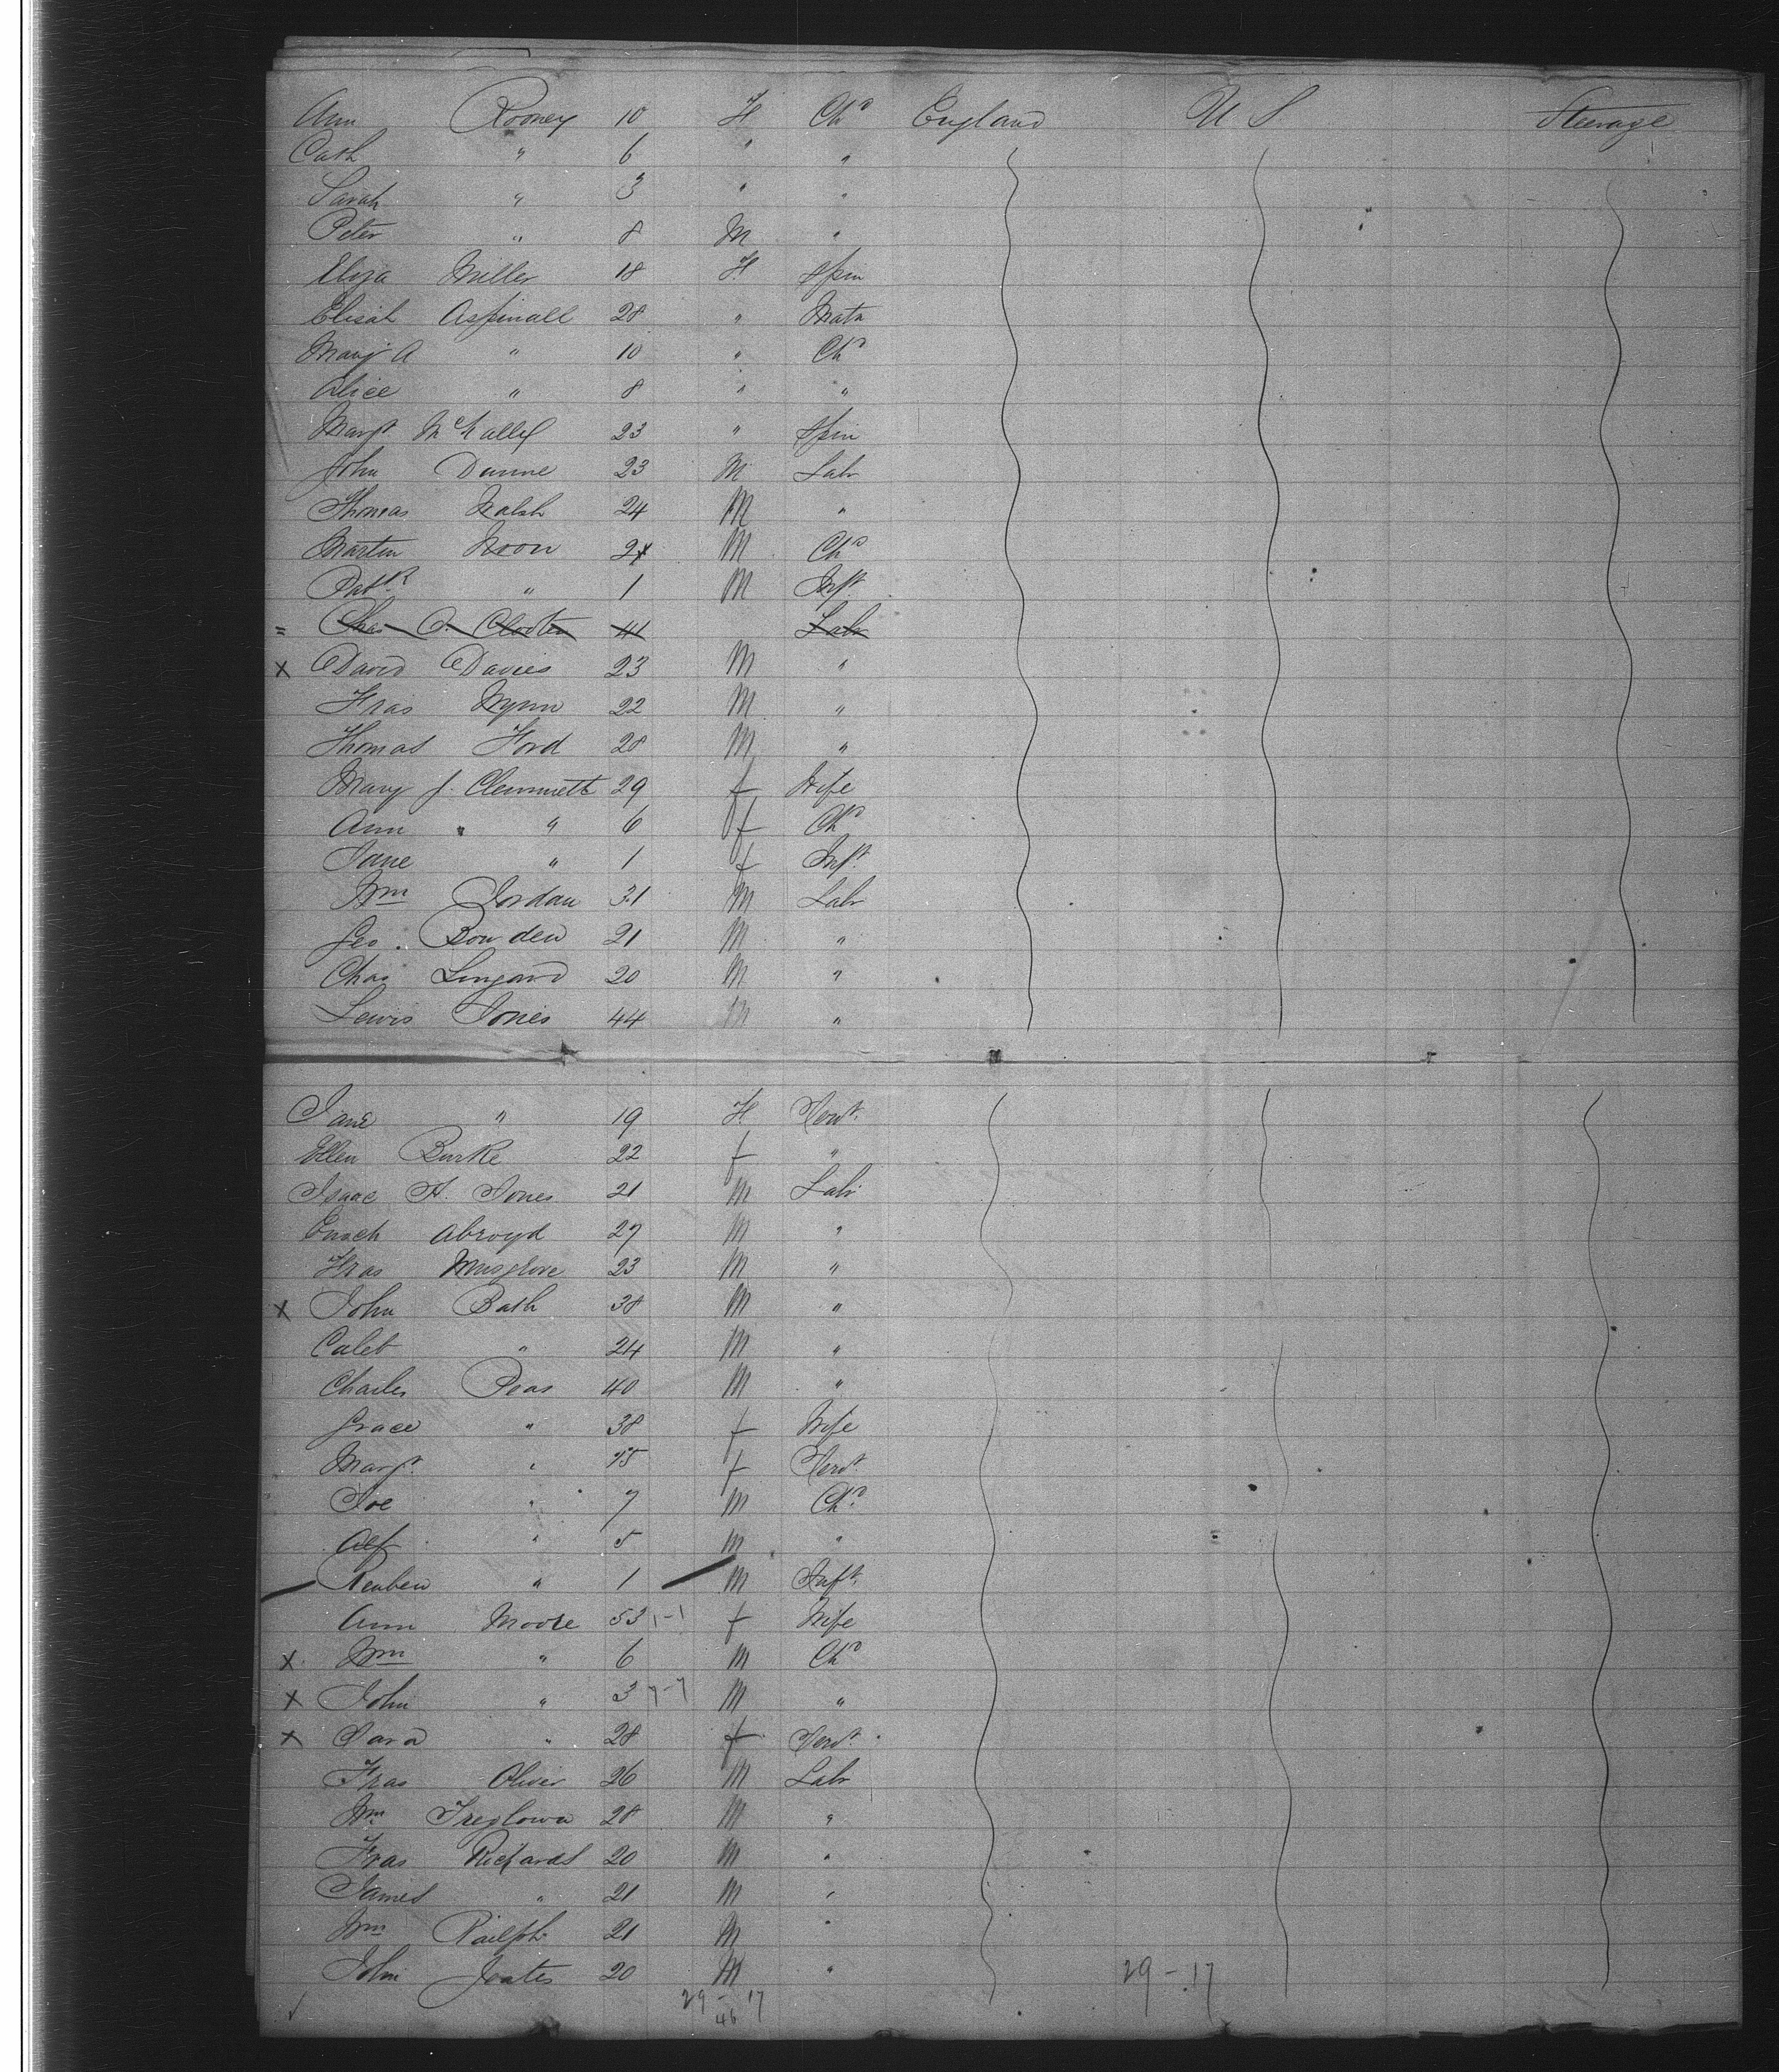 Ann Rooney 10 F Chd England U S Steerage
Cath " 6 " "
Sarah " 3 " "
Peter " 8 M "
Eliza Miller 18 F Spin
Elisah Aspinall 28 " Matn
Mary A " 10 " Chd
Alice " 8 " "
Margt 23 " Spin
John Dunne 23 M Labr
Thomas Walsh 24 M "
Martin Noon 2 M Chd
Patk " 1 M Inft
= Chas 41 Labr
x David Davies 23 M "
Fras Wynn 22 M "
Thomas Ford 28 M "
Mary J. Clemmett 29 f Wife
Ann " " 6 f Chd
Jane " 1 f Inft
Wm Jordan 31 M Labr
Geo. Bowden 21 M "
Chas Lingard 20 M "
Lewis Jones 44 M "
Jane " 19 F Servt
Ellen Burke 22 f "
Isaac H. Jones 21 M Labr
Enoch Abroyd 27 M "
Fras Musglove 23 M "
x John Bath 38 M "
Caleb " 24 M "
Charles Peas 40 M "
Grace " 38 f Wife
Margt " 15 f Servt
Joe " 7 M Chd
Alf " 5 M "
Reuben " 1 M Inft
Ann Moore 53 1-1 f Wife
x Wm " 6 M Chd
x John " 3 7-7 M "
x Sara " 28 f Servt
Fras Oliver 26 M Labr
Wm Treglown 28 M "
Fras Richards 20 M "
James " 21 M "
Wm Ralph 21 M "
John 20 M " 29-17
29-17
46